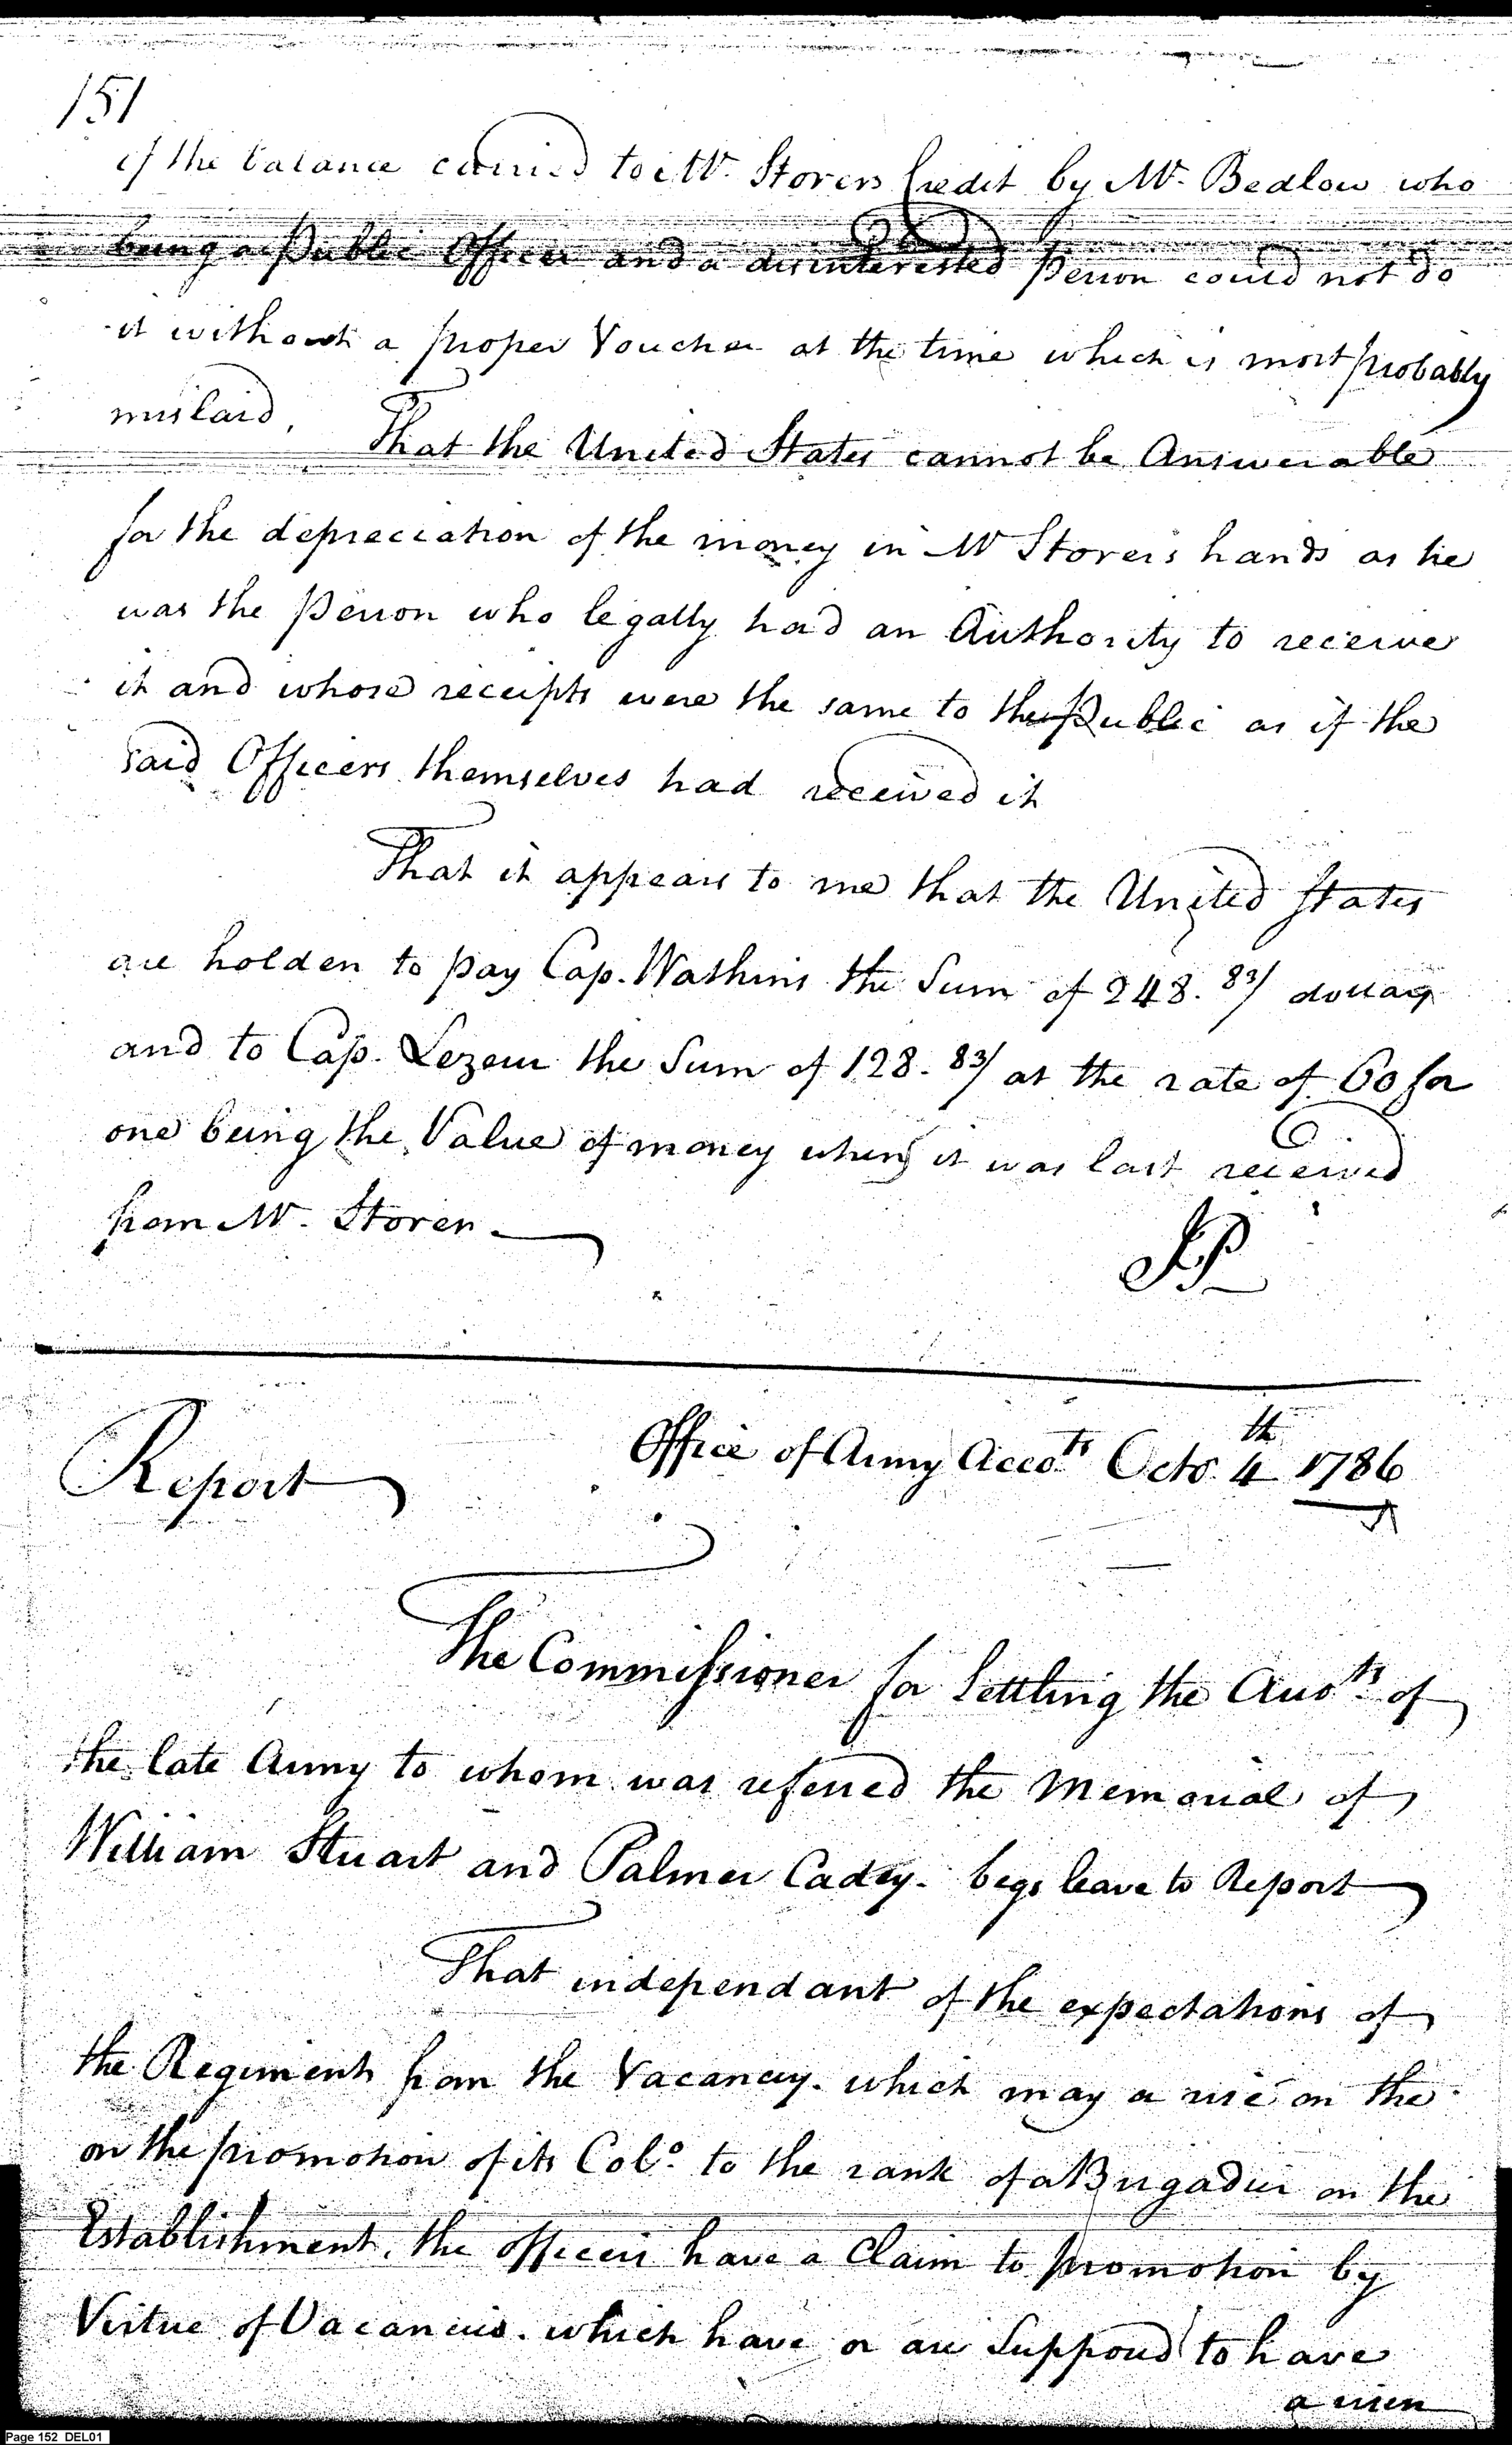 151
of the balance carried to Mr. Storers Credit by Mr. Bedlow who
being a Public Officer and a disinterested Person could not do
it without a proper Voucher at the time which is most probably
mislaid, That the United States cannot be Answerable
for the depreciation of the money in Mr Storers hands as he
was the Person who legally had an Authority to receive
it and whose receipts were the same to the Public as if the
said Officers themselves had received it
That it appears to me that the United States
are holden to pay Cap. Watkins the Sum of 248. 83/ dollars
and to Cap. Lezear the Sum of 128. 83/ at the rate of 60 for
one being the Value of money when it was last received
from Mr. Storer
JP
Report
Office of Army Accots Octo. 4th 1786
The Commissioner for Settling the Accots of
the late Army to whom was referred the Memorial of
William Stuart and Palmer Cadey. begs leave to Report
That independant of the expectations of
the Regiment from the Vacancy. which may arise on the
on the promotion of its Colo. to the rank of a Brigadier on the
Establishment, the officers have a Claim to promotion by
Virtue of Vacancies. which have or are Supposed to have
arisen
Page 152 DEL01